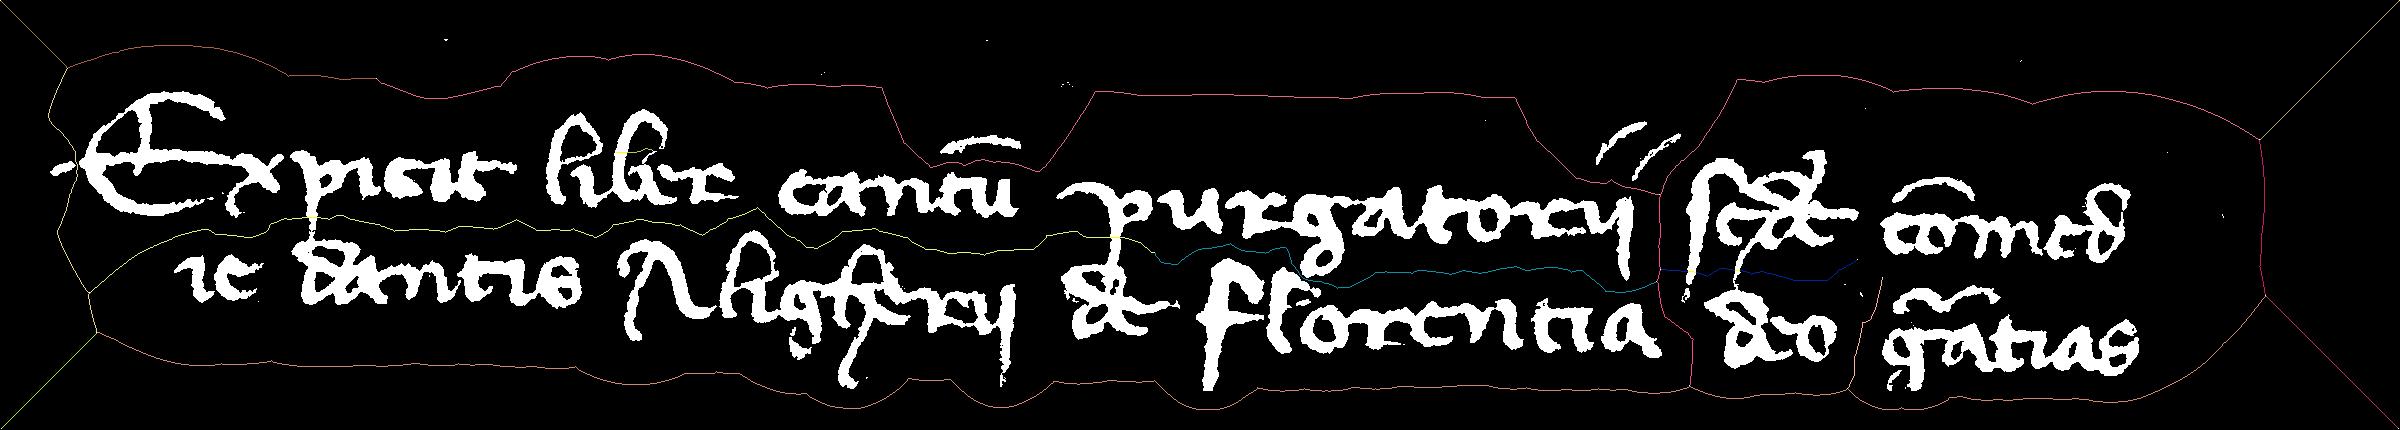 Expicit liber cantū purgatorij scde comed
ie dantis Aligherij de florentia deo gr̃atias